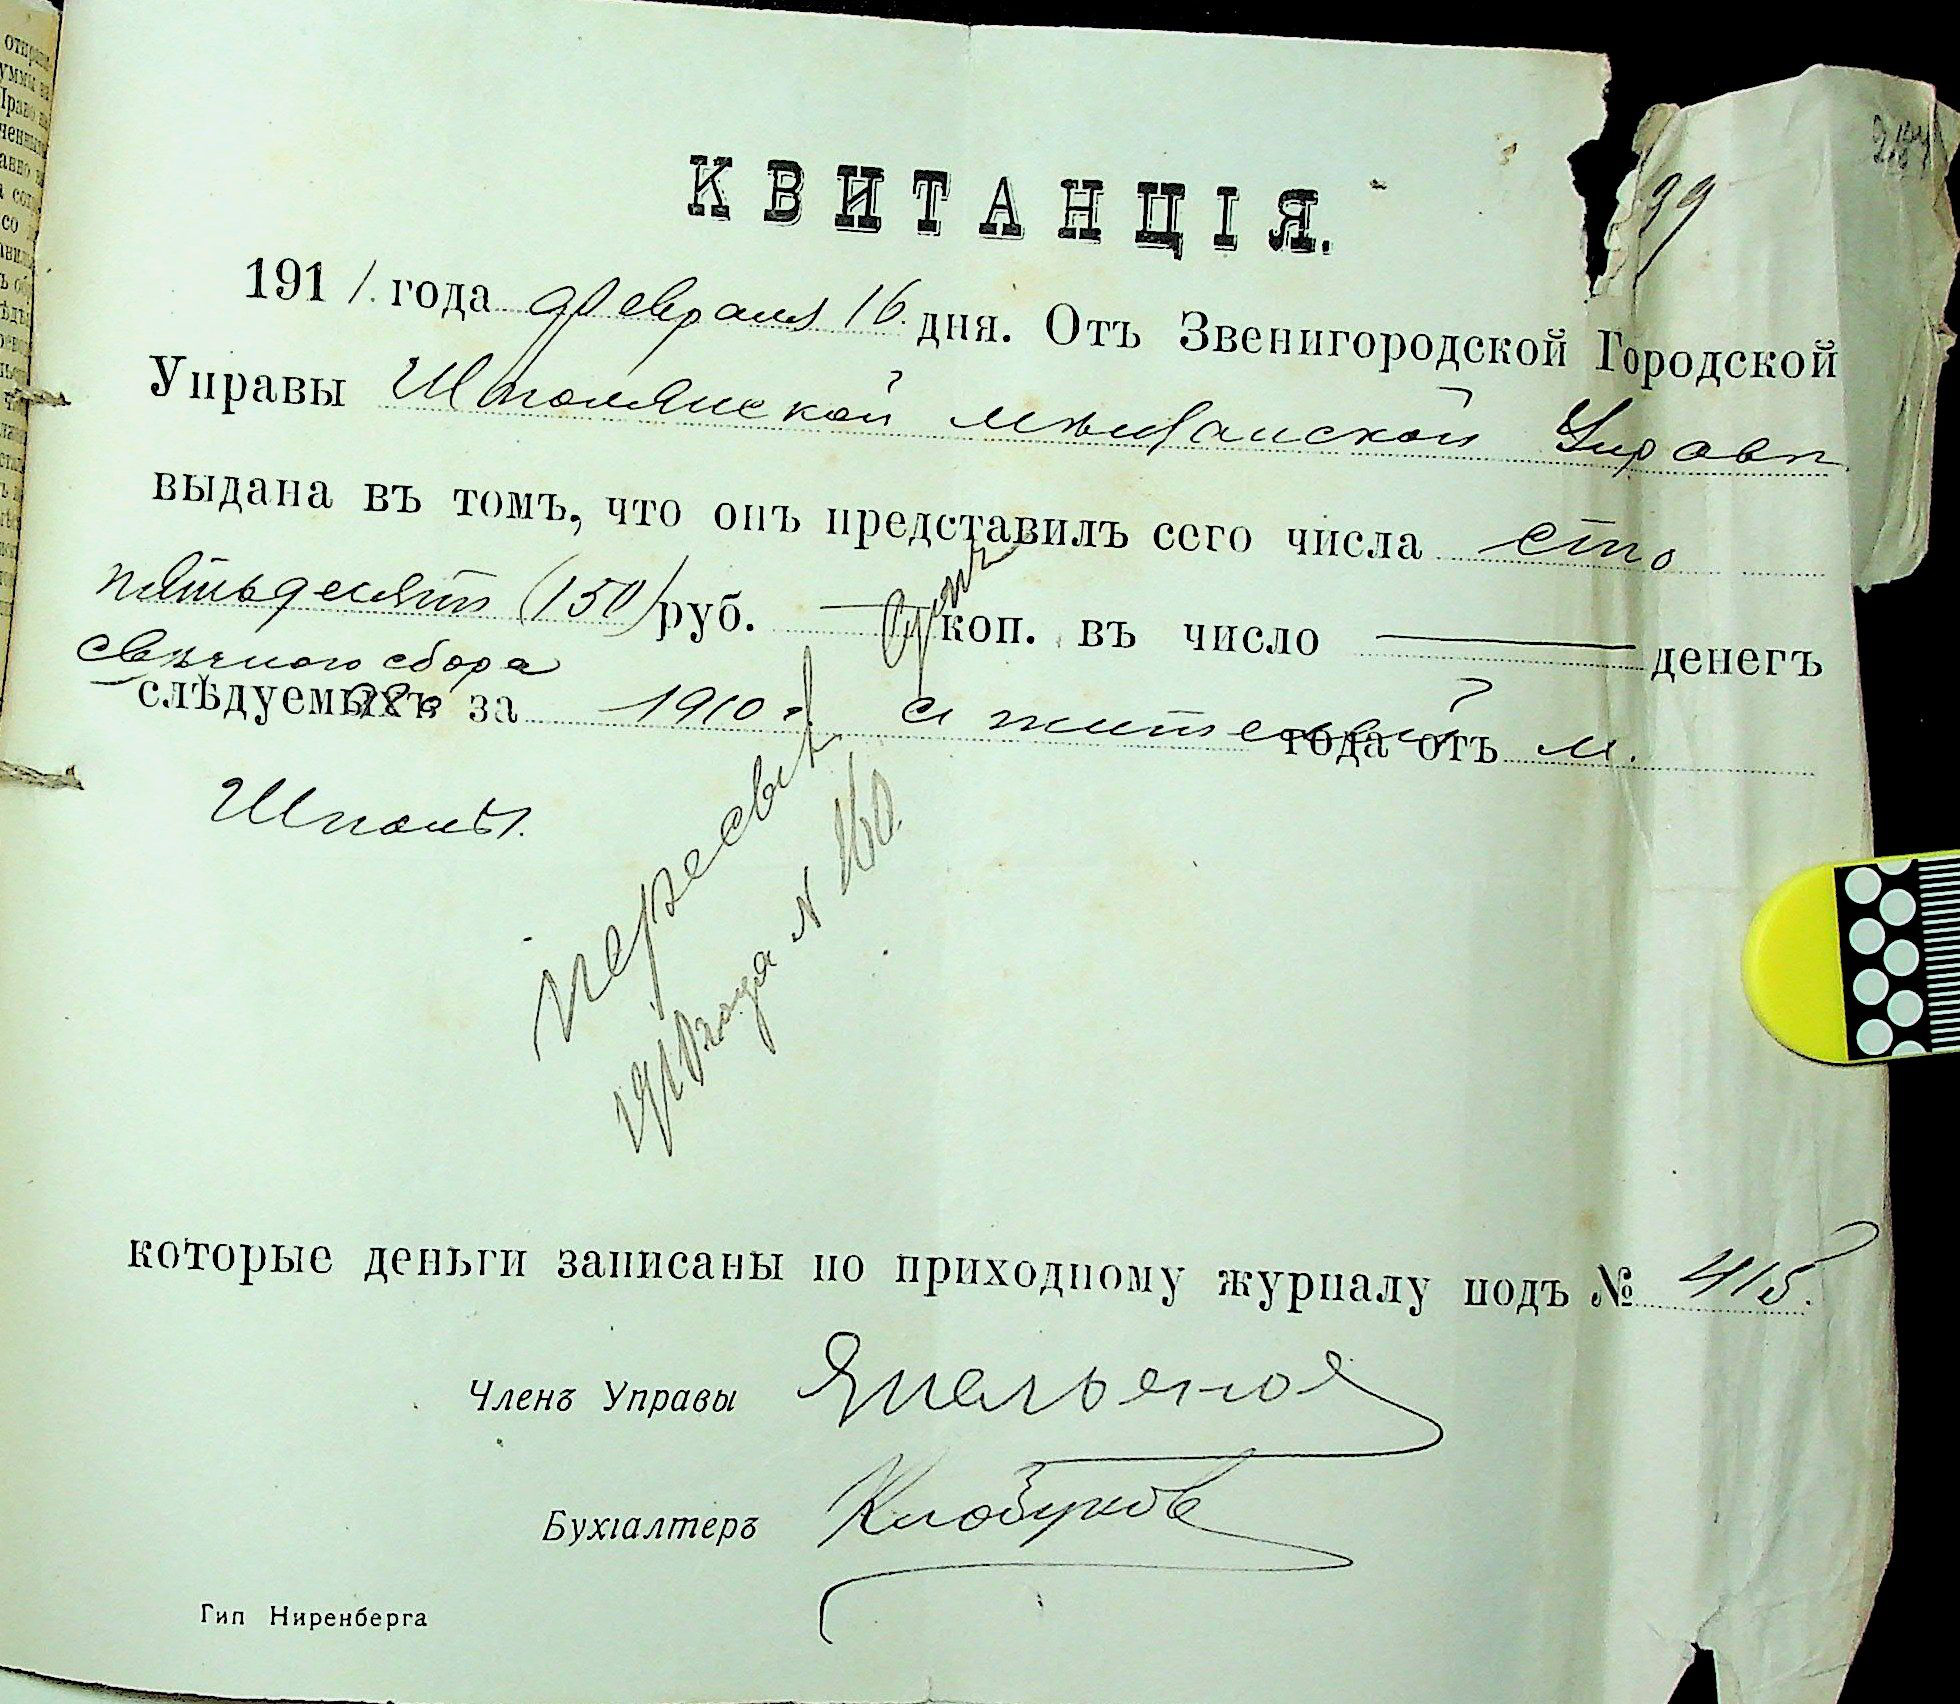 КВИТАНЦІЯ.
99
1911. года февраля 16 дня. Отъ Звенигородской Городской
Управы Шполянской мѣщанской Управѣ
выдана въ томъ, что онъ представилъ сего числа сто
пятьдесятъ (150) руб. — коп. въ число — денегъ
свѣчного сбора
слѣдуемыхъ за 1910 г. съ жителей года отъ м.
Шполы.
1910 года № 160.
которые деньги записаны по приходному журналу подъ № 415.
Членъ Управы
Бухгалтеръ Клобуков
Тип Ниренберга